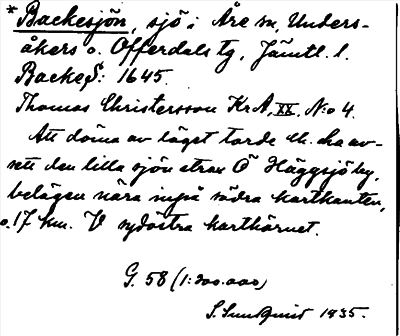 * Backesjön, sjö i Åre sn, Unders-
åkers o. Offerdals tg, Jämtl. l.
Backe S: 1645.
Thomas Christersson KrA, XX, No 4.
Att döma av läget torde Ch. ha av-
sett den lilla sjön strax Ö Häggsjö by,
belägen nära ingså södra kartkanten,
o. 17 km. V sydöstra karthörnet.
G. 58 (1:200.000)
S. Sundquist 1935.